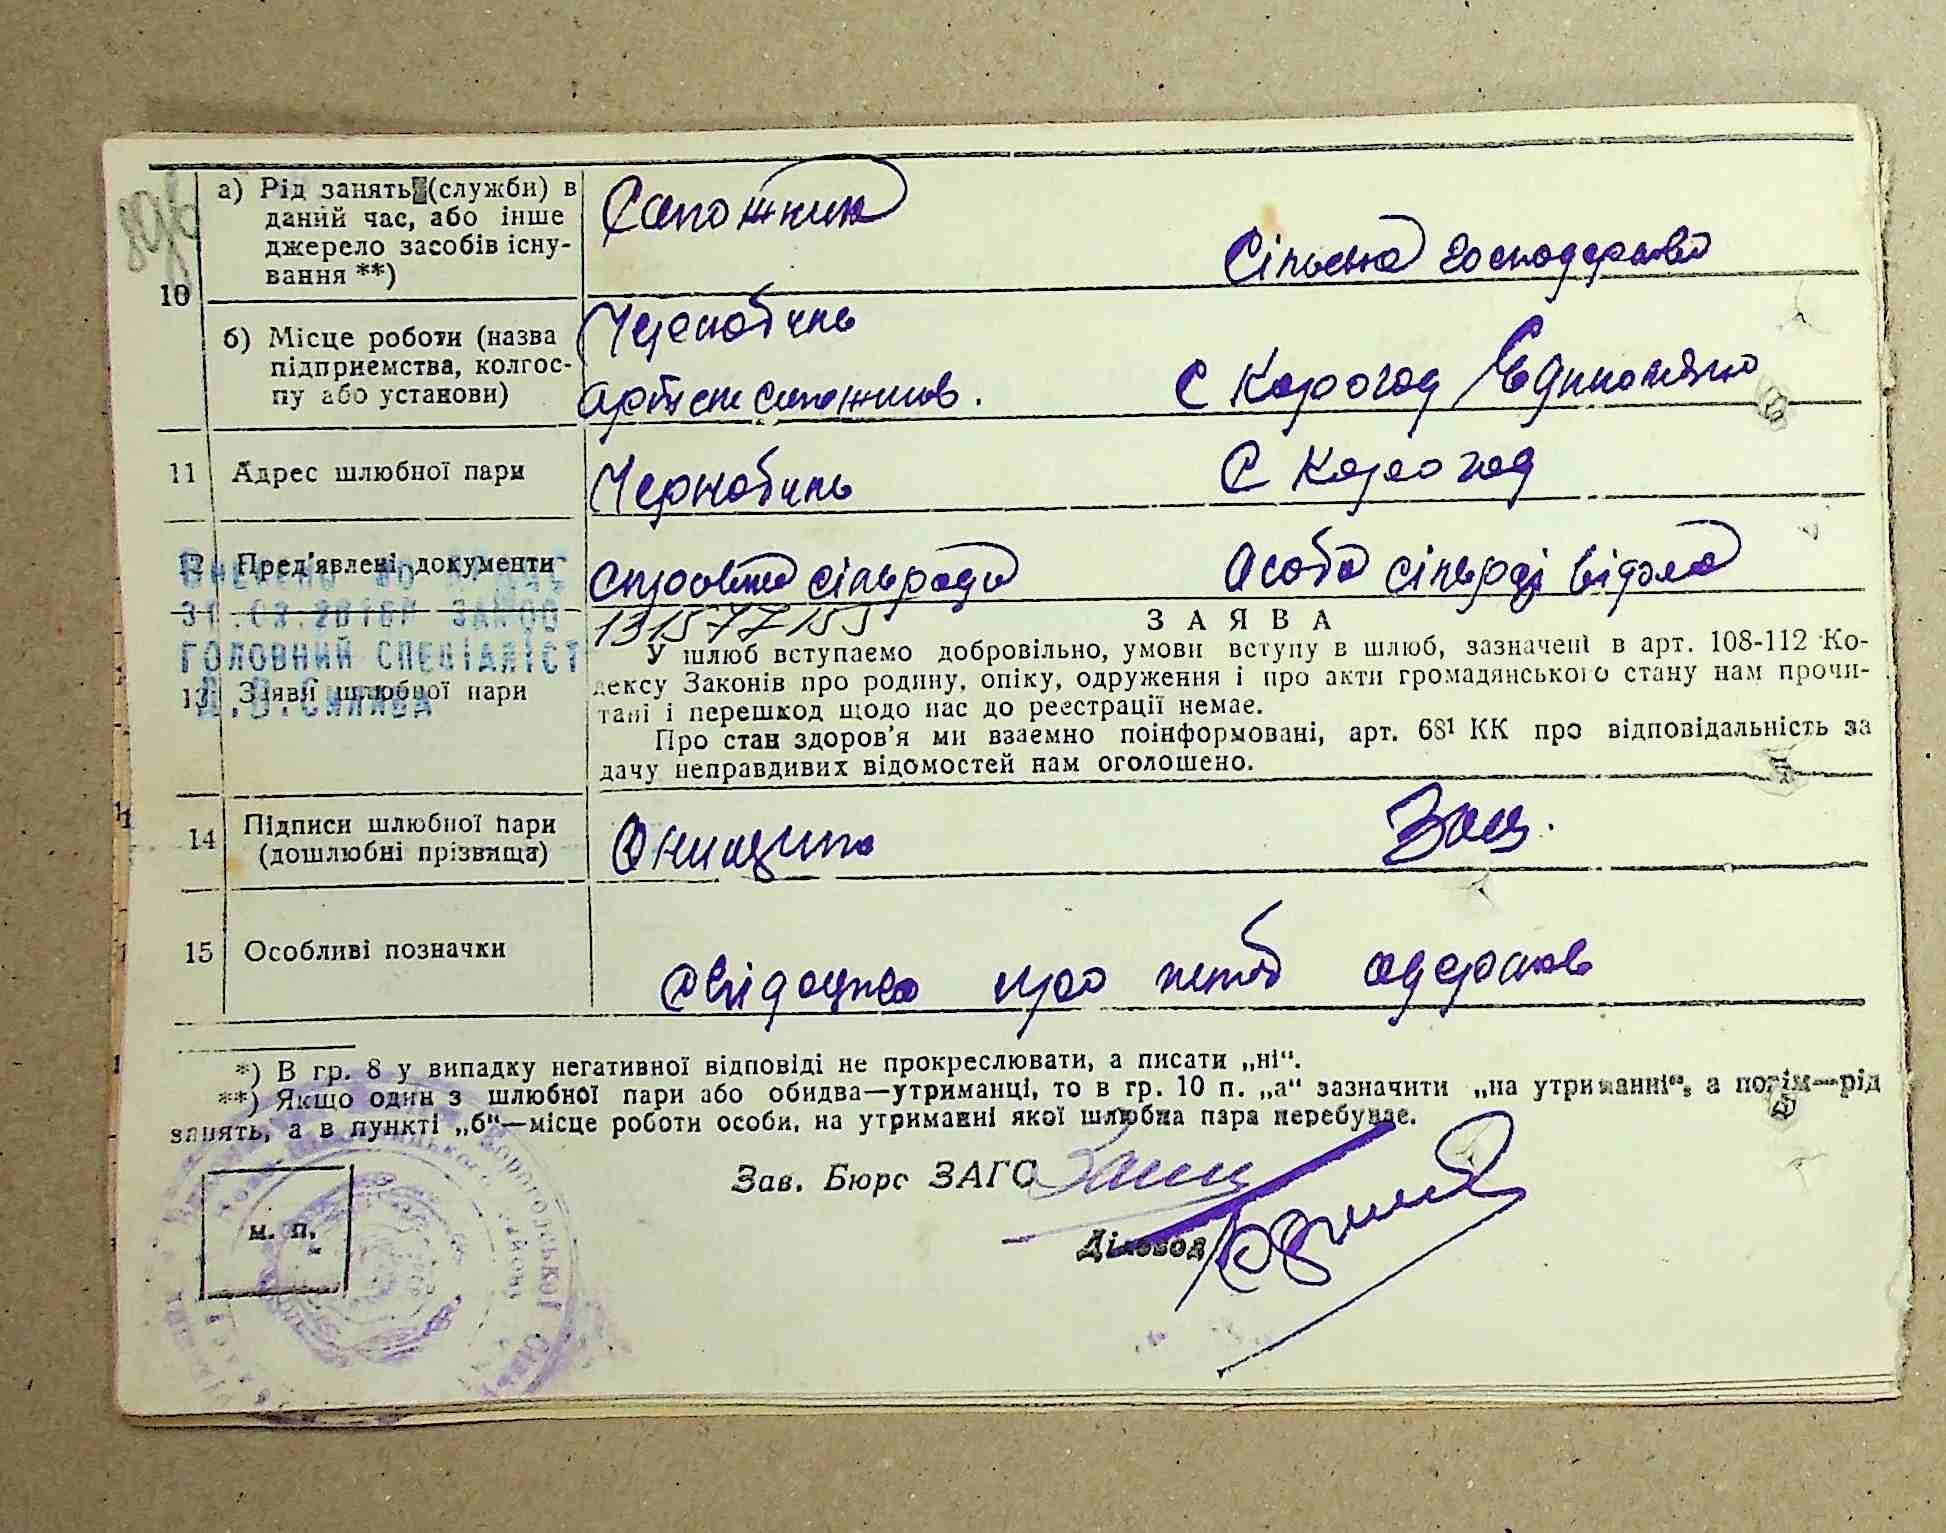 10
а) Рід занять (служби) в
даний час, або інше
джерело засобів існу-
вання **)
Сапожник
Сільське господарство
б) Місце роботи (назва
підприемства, колгос-
пу або установи)
Чернобиль
артель сапожников.
С Корогод Єдинолично
11 Адрес шлюбної пари
Чернобиль
С Корогод
12 Пред'явлені документи
справка сільради
Особа сільраді відома
ВНЕСЕНО ДО
ГОЛОВНИЙ СПЕЦІАЛІСТ
13 Заяви шлюбної пари
ЗАЯВА
У шлюб вступаемо добровільно, умови вступу в шлюб, зазначені в арт. 108-112 Ко-
дексу Законів про родину, опіку, одруження і про акти громадянського стану нам прочи-
тані і перешкод щодо нас до реестрації немае.
Про стан здоров'я ми взаемно поінформовані, арт. 68¹ КК про відповідальність за
дачу неправдивих відомостей нам оголошено.
14 Підписи шлюбної пари
(дошлюбні прізвища)
Онищенко
Заяц.
15 Особливі позначки
про шлюб
*) В гр. 8 у випадку негативної відповіді не прокреслювати, а писати „ні“.
**) Якщо один з шлюбної пари або обидва—утриманці, то в гр. 10 п. „а“ зазначити „на утриманні“, а потім—рід
занять, а в пункті „б“—місце роботи особи, на утриманні якої шлюбна пара перебувае.
Зав. Бюро ЗАГС
Діловод
м. п.